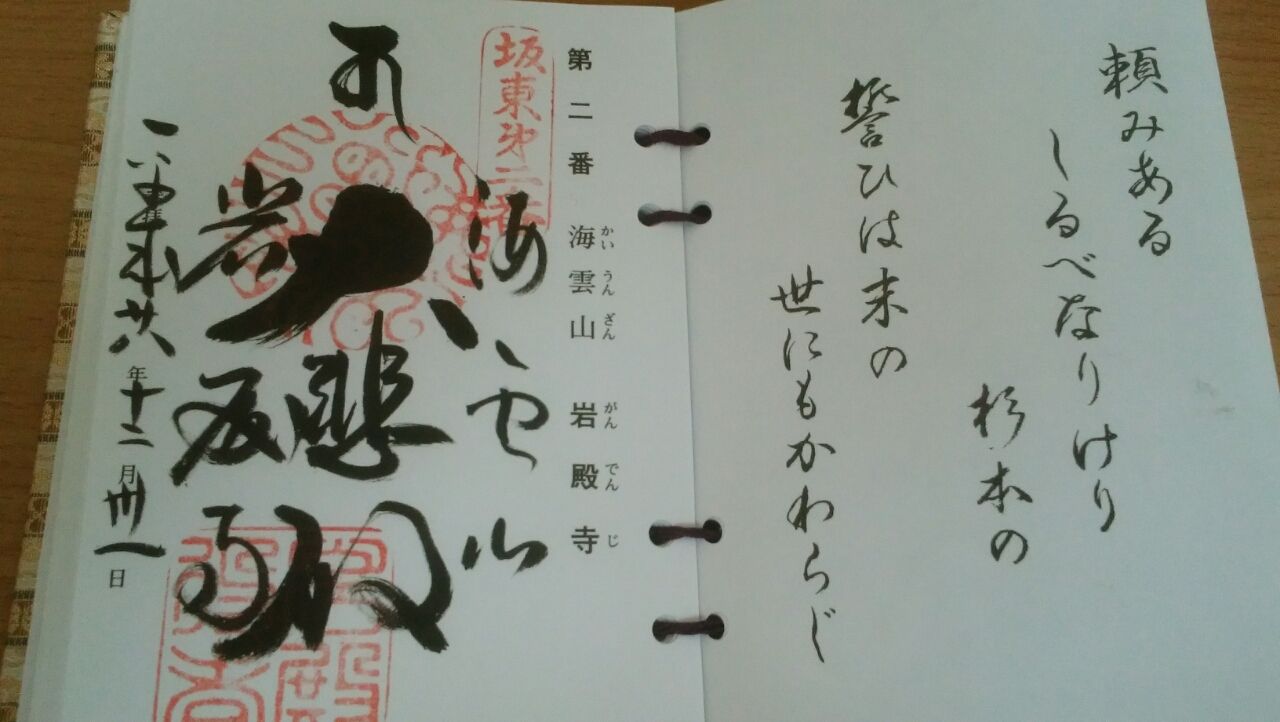 頼みある
しるべなりけり
杉本の
誓ひは末の
世にもかわらじ
第二番 海雲山 岩殿寺
かいうんざん がんでんじ
坂東第二番
海雲山
大悲殿
岩殿寺
廿六年十二月卅一日